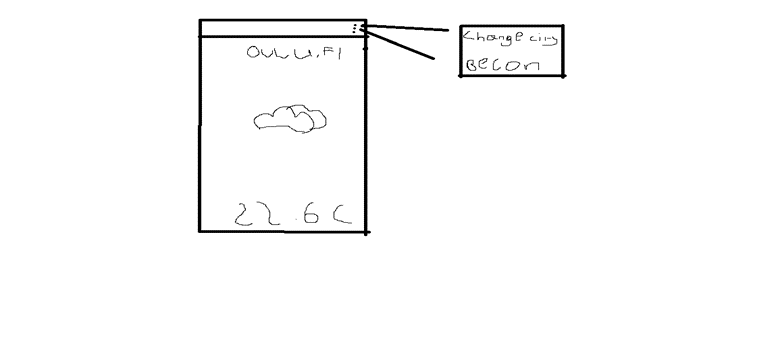 OULU.FI
22.6 C
Change city
Becon